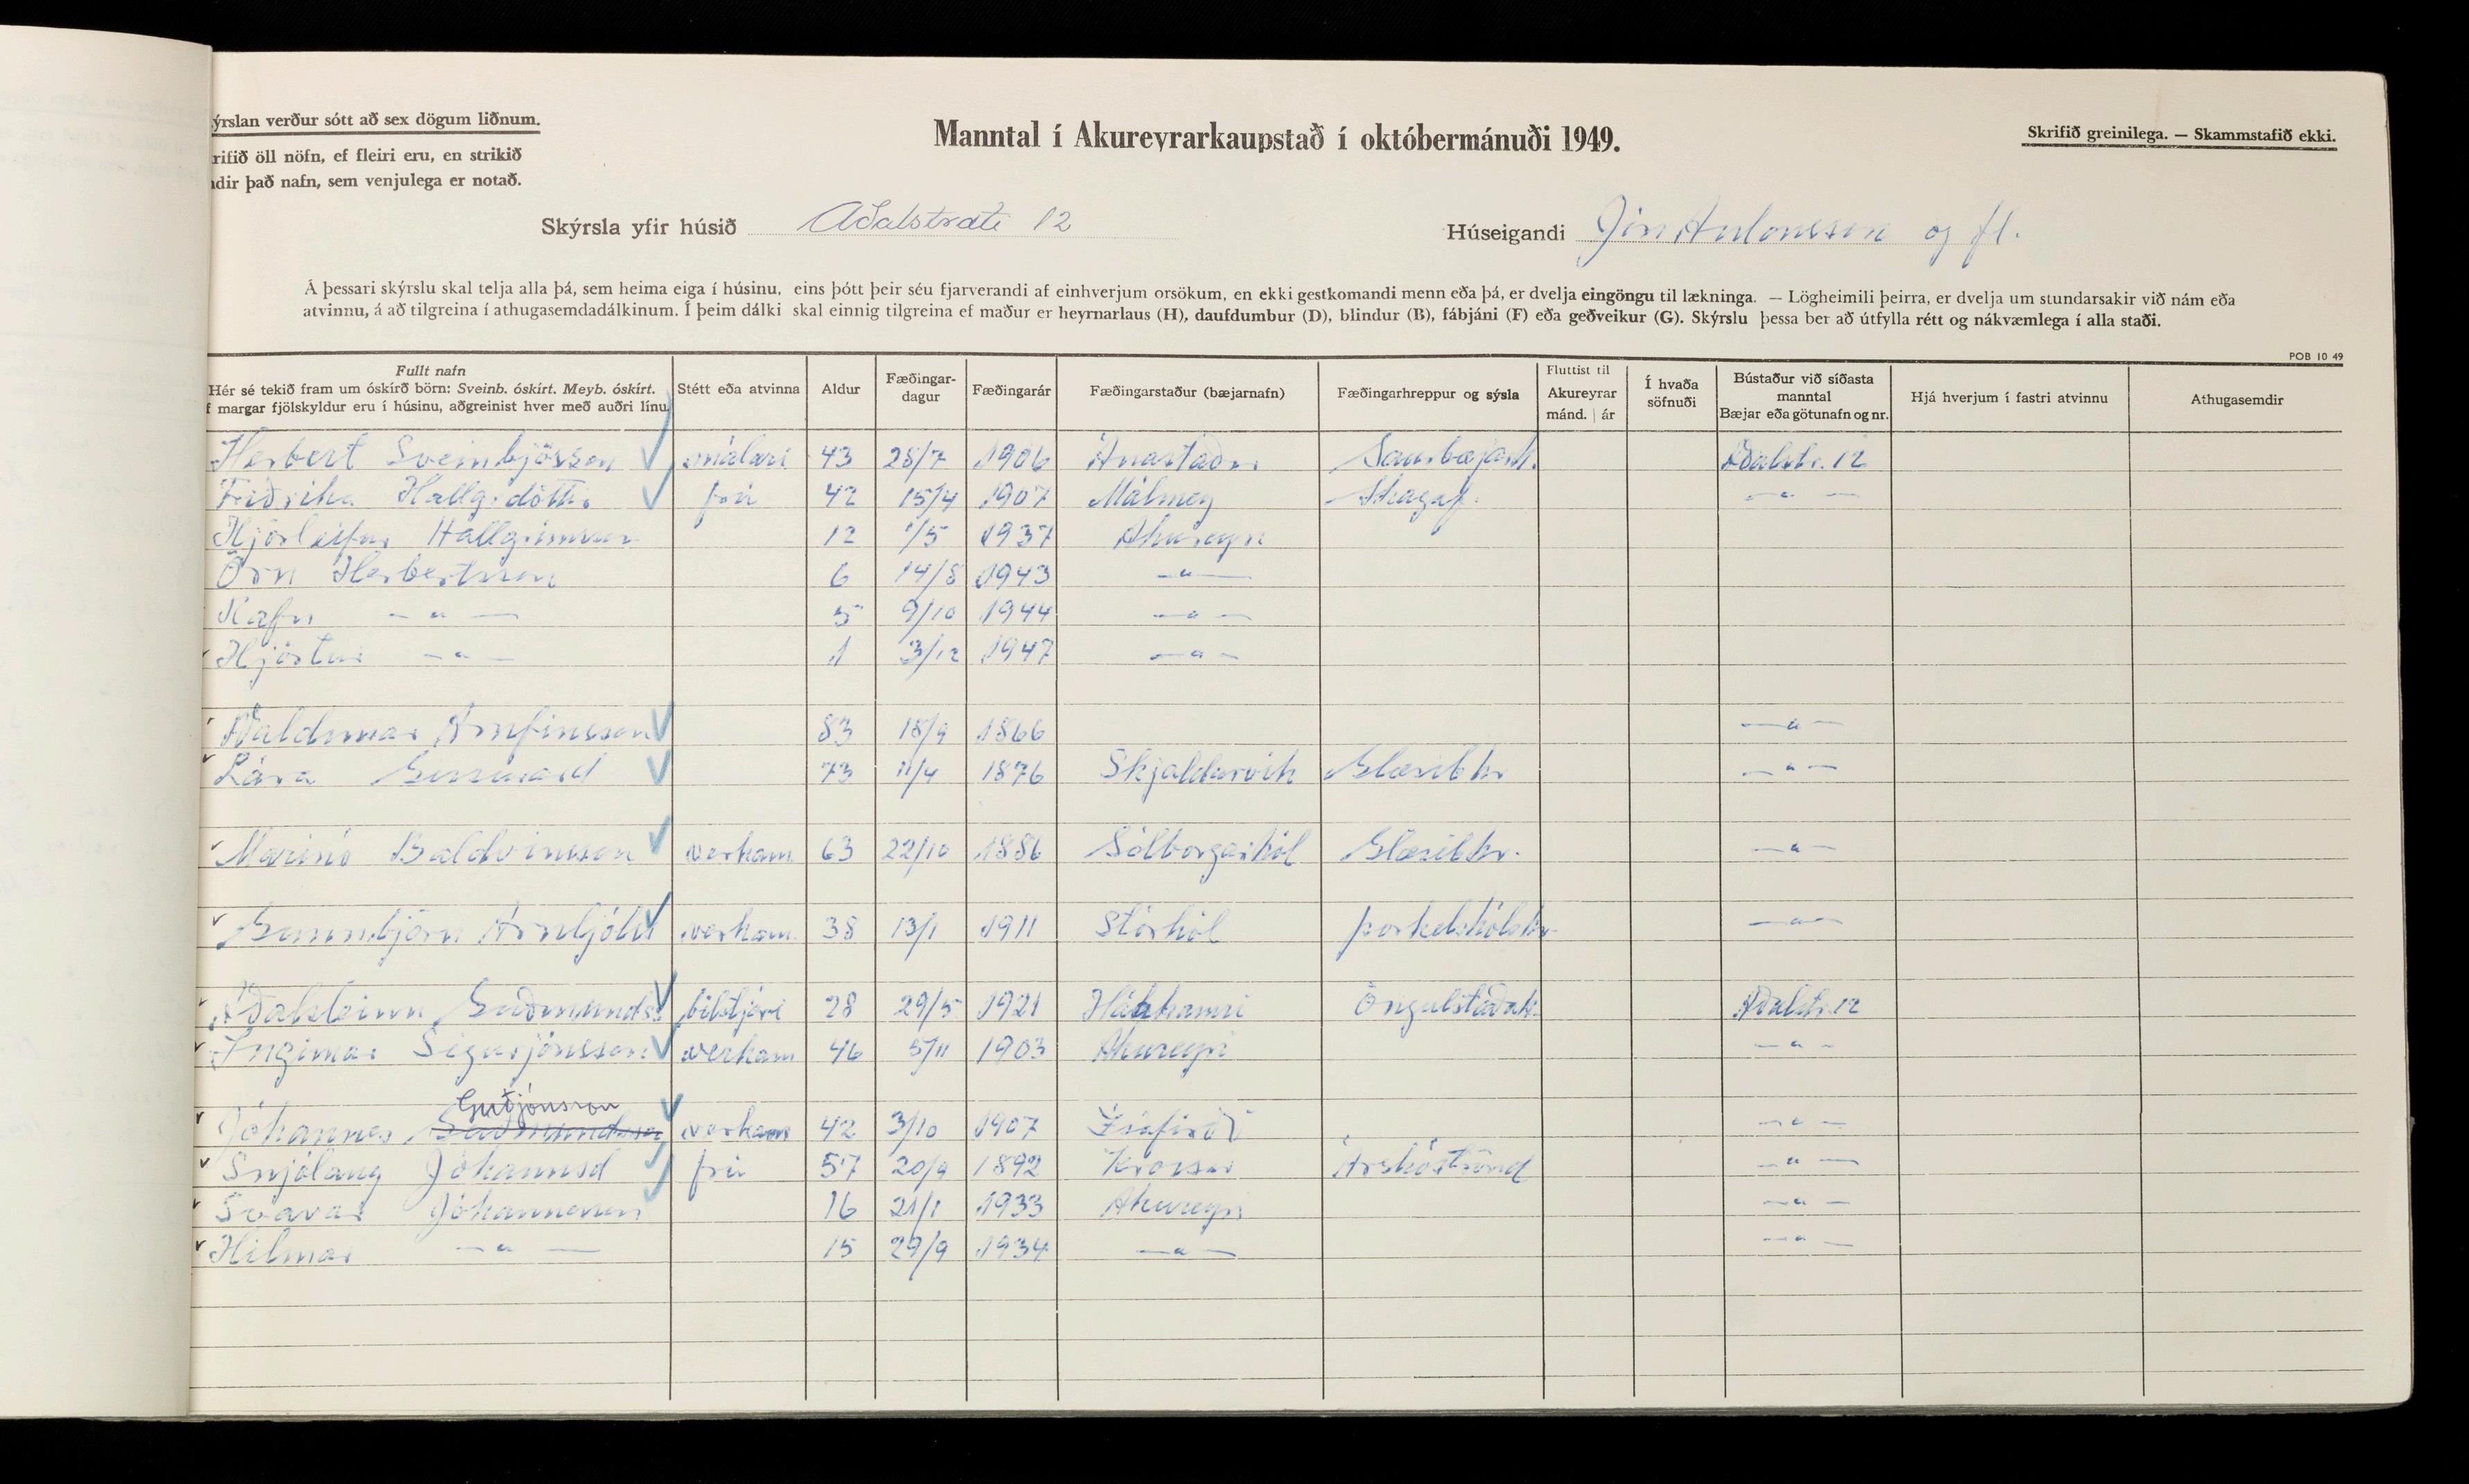 ýrslan verður sótt að sex dögum liðnum.
rifið öll nöfn, ef fleiri eru, en strikið
dir það nafn, sem venjulega er notað.
Manntal í Akureyrarkaupstað í októbermánuði 1949.
Skrifið greinilega. — Skammstafið ekki.
Skýrsla yfir húsið Aðalstræti 12
Húseigandi Jón Antonsson og fl.
Á þessari skýrslu skal telja alla þá, sem heima eiga í húsinu, eins þótt þeir séu fjarverandi af einhverjum orsökum, en ekki gestkomandi menn eða þá, er dvelja eingöngu til lækninga. — Lögheimili þeirra, er dvelja um stundarsakir við nám eða
atvinnu, á að tilgreina í athugasemdadálkinum. Í þeim dálki skal einnig tilgreina ef maður er heyrnarlaus (H), daufdumbur (D), blindur (B), fábjáni (F) eða geðveikur (G). Skýrslu þessa ber að útfylla rétt og nákvæmlega í alla staði.
POB 10 49
Fullt nafn
Hér sé tekið fram um óskírð börn: Sveinb. óskírt. Meyb. óskírt.
f margar fjölskyldur eru í húsinu, aðgreinist hver með auðri línu.
Stétt eða atvinna
Aldur
Fæðingar-
dagur
Fæðingarár
Fæðingarstaður (bæjarnafn)
Fæðingarhreppur og sýsla
Fluttist til
Akureyrar
mánd. | ár
Í hvaða
söfnuði
Bústaður við síðasta
manntal
Bæjar eða götunafn og nr.
Hjá hverjum í fastri atvinnu
Athugasemdir
Herbert Sveinbjössen málari 43 28/7 1906 Ánastaðir Saurbæjarh. Aðalstr. 12
Friðrika Hallg.dóttir frú 42 15/4 1907 Málmey Skagaf. — " —
Hjörleifur Hallgrímsson 12 1/5 1937 Akureyri
Örn Herbertsson 6 14/8 1943 — " —
Rafn — " — 5 9/10 1944 — " —
Hjörtur — " — 1 3/12 1947 — " —
Valdimar Arnfinsson 83 18/9 1866 — " —
Lára Gunnarsd 73 11/4 1876 Skjaldarvík Glæsibhr — " —
Marinó Baldvinsson verkam. 63 22/10 1886 Sólborgarhól Glæsibhr. — " —
Gunnbjörn Arnljótss verkam. 38 13/1 1911 Stórhól Þorkelshólshr. — " —
Aðalsteinn Guðmunds. bílstjóri 28 29/5 1921 Hákhamri Öngulstaðah. Aðalstr. 12
Ingimar Sigurjónsson verkam 46 5/11 1903 Akureyri — " —
Guðjónsson
Jóhannes Guðmundsson verkam 42 3/10 1907 Ísafirði — " —
Snjólaug Jóhannsd frú 57 20/9 1892 Krossar Árskóströnd — " —
Svavar Jóhannesson 16 21/1 1933 Akureyri — " —
Hilmar — " — 15 29/9 1934 — " — — " —